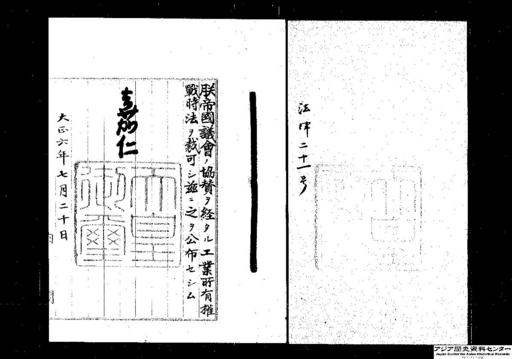 法律二十一号
朕帝國議會ノ協賛ヲ経タル工業所有権
戰時法ヲ裁可シ茲ニ之ヲ公布セシム
嘉仁
天皇
御璽
大正六年七月二十日
アジア歴史資料センター
Japan Center for Asian Historical Records